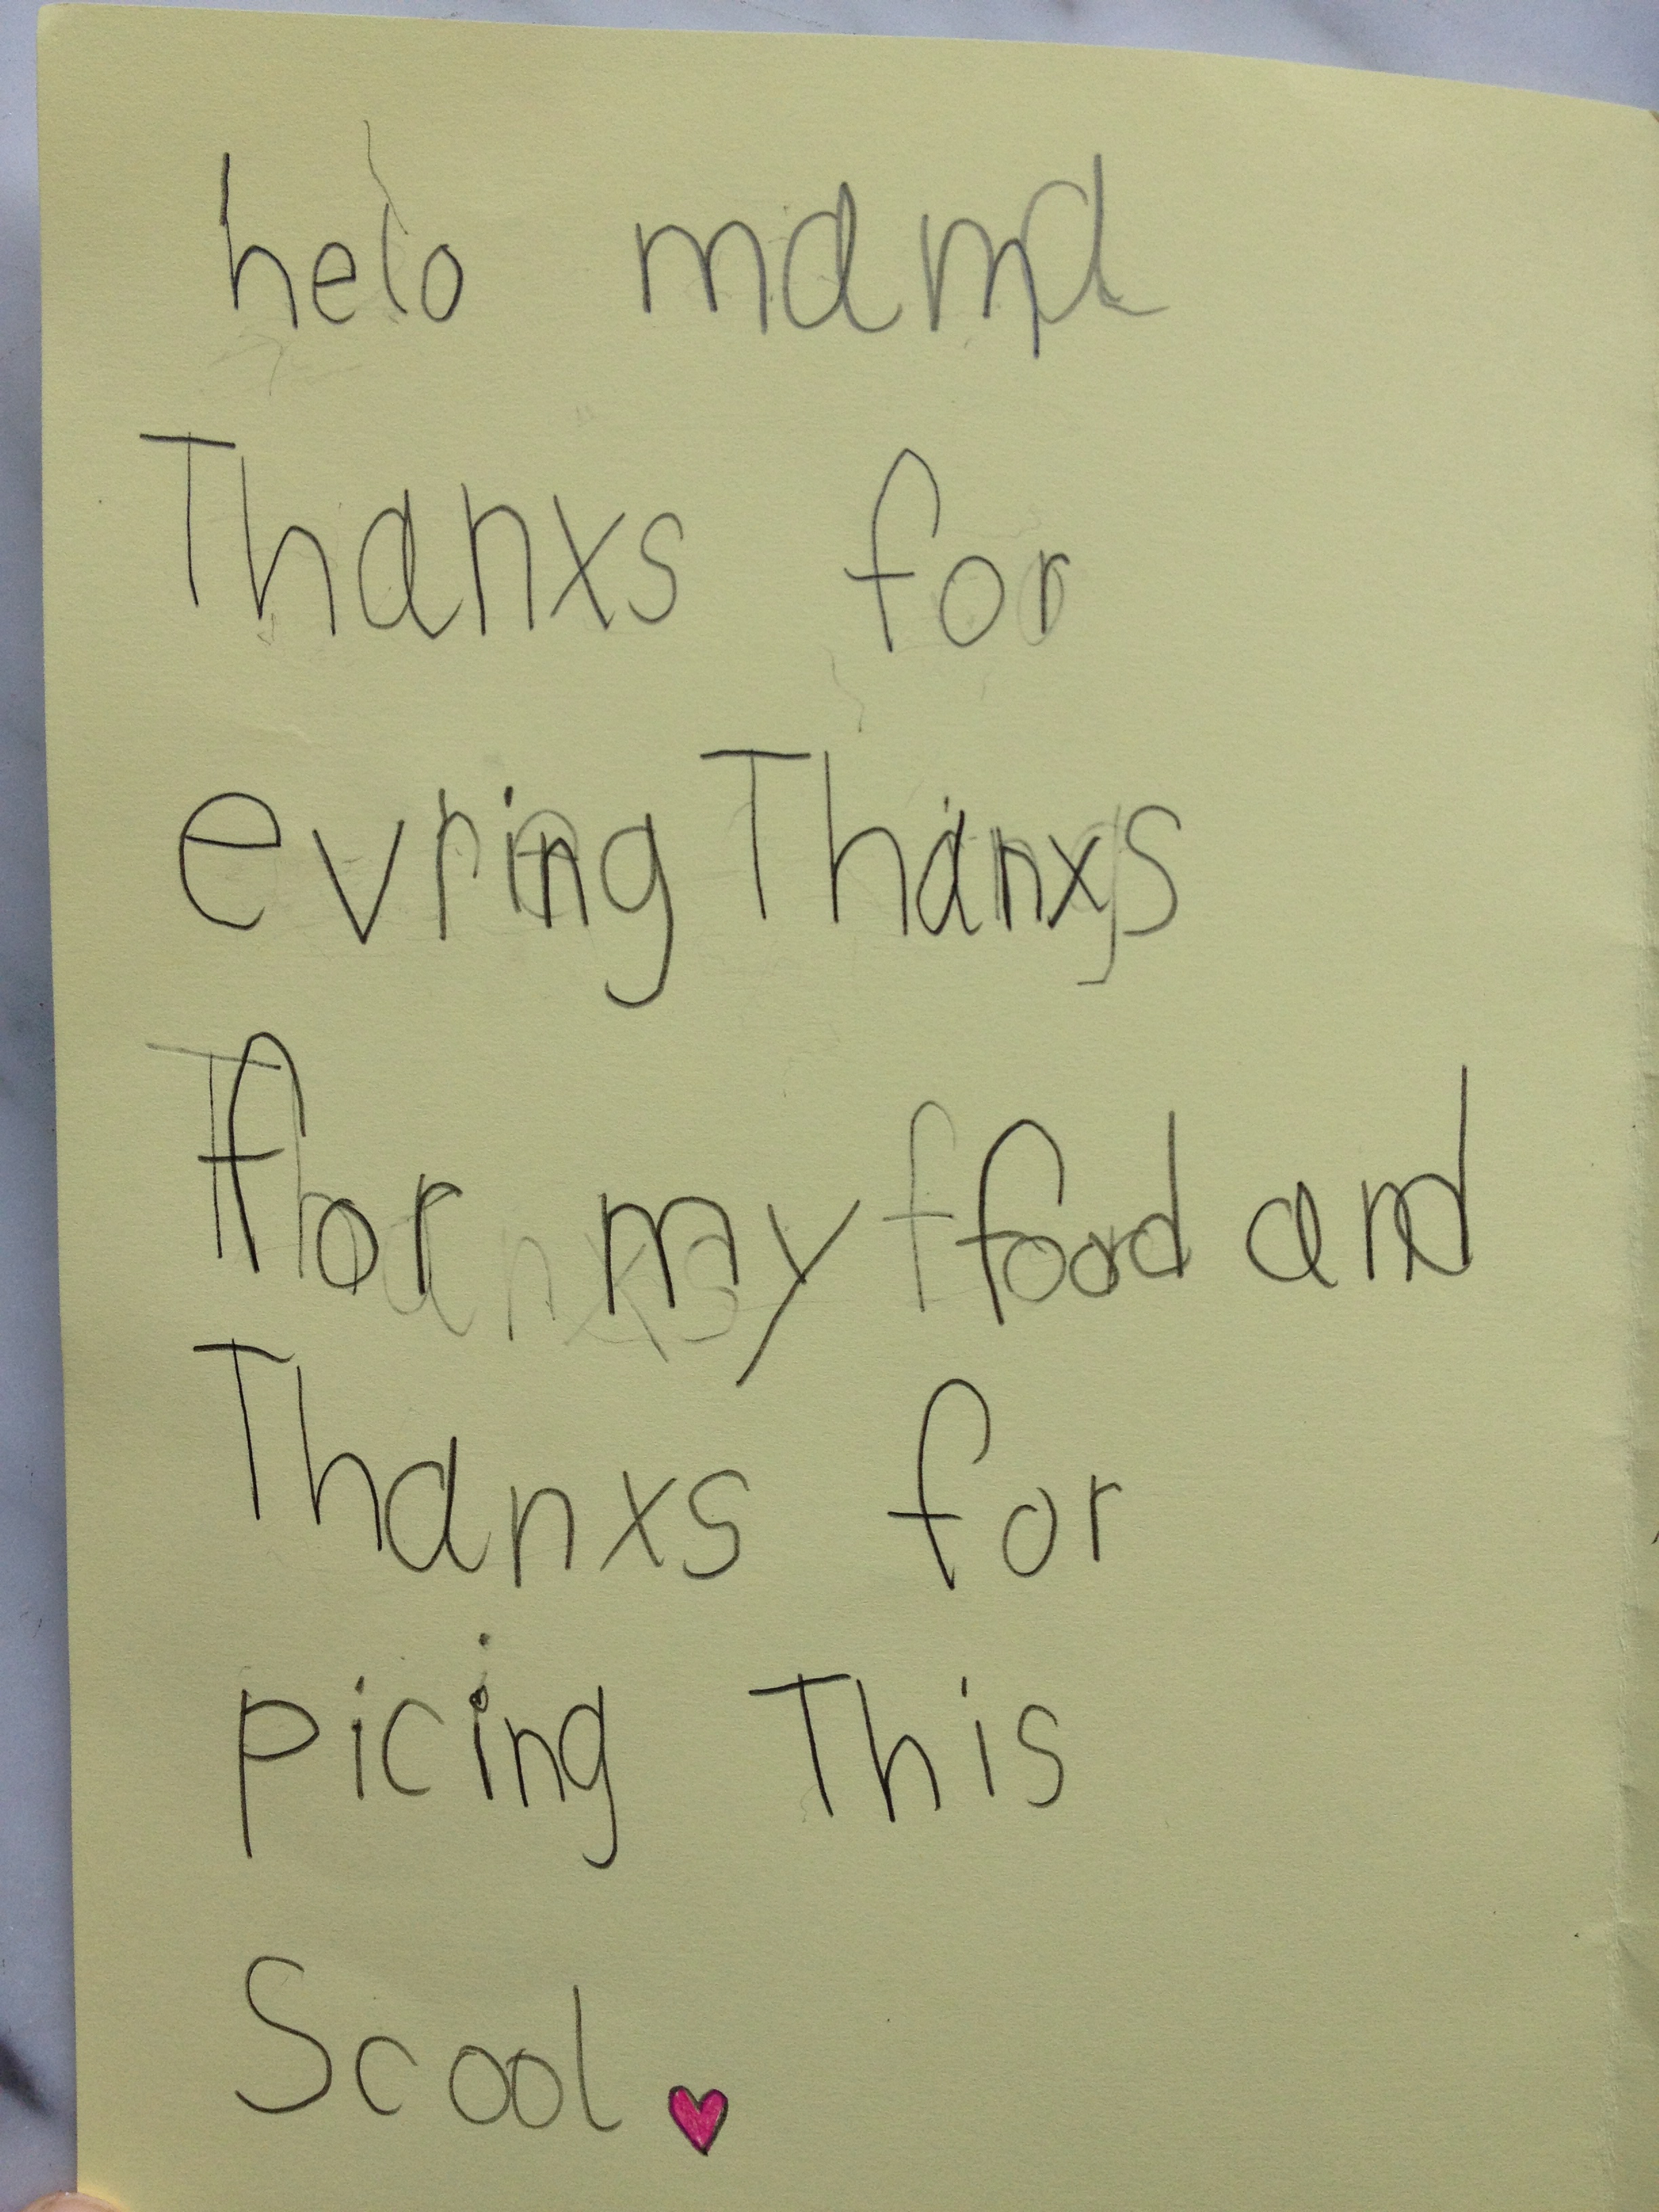 helo mama
Thanxs for
evring Thanxs
for my food and
Thanxs for
picing This
Scool